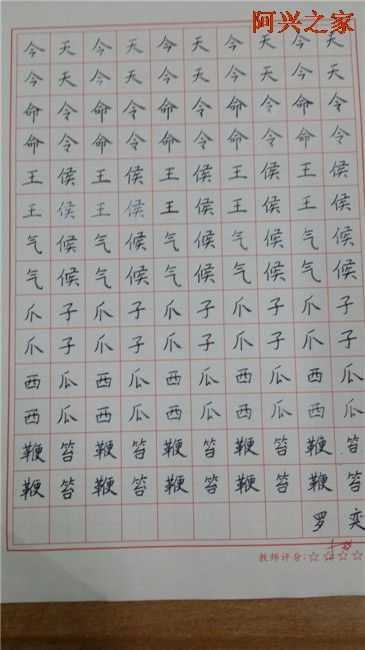 阿兴之家
今天今天今天今天今天
今天今天今天今天今天
命令命令命令命令命令
命令命令命令命令命令
王侯王侯王侯王侯王侯
王侯王侯王侯王侯王侯
气候气候气候气候气候
气候气候气候气候气候
爪子爪子爪子爪子爪子
爪子爪子爪子爪子爪子
西瓜西瓜西瓜西瓜西瓜
西瓜西瓜西瓜西瓜西瓜
鞭笞鞭笞鞭笞鞭笞鞭笞
鞭笞鞭笞鞭笞鞭笞鞭笞
罗奕
教师评分:☆☆☆☆